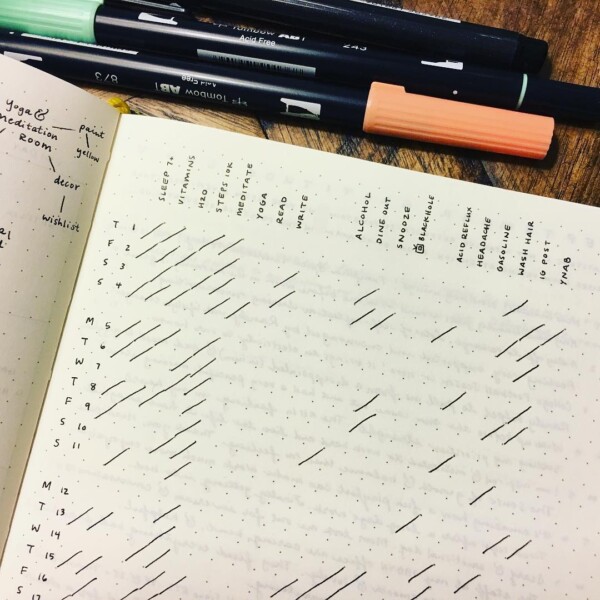 Tombow ABT
Acid Free
243
873
Acid Free
Tombow ABT
Yoga &
meditation
Room
paint
yellow
decor
wishlist
SLEEP 7+
VITAMINS
H2O
STEPS 10K
MEDITATE
YOGA
READ
WRITE
ALCOHOL
DINE OUT
SNOOZE
BLACKHOLE
ACID REFLUX
HEADACHE
GASOLINE
WASH HAIR
IG POST
YNAB
T 1
F 2
S 3
S 4
M 5
T 6
W 7
T 8
F 9
S 10
S 11
M 12
T 13
W 14
T 15
F 16
S 17